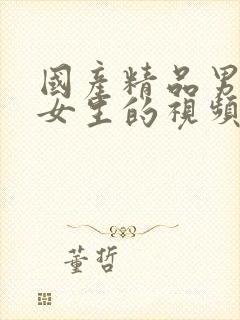 國產精品男
女生的視頻
董哲